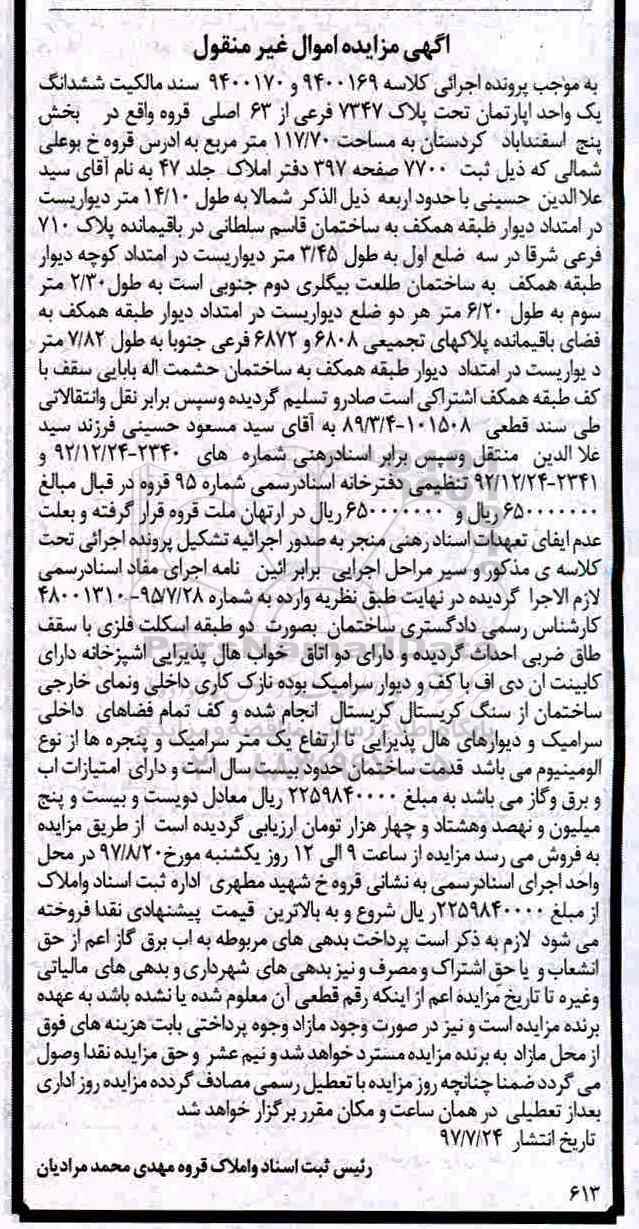 اگهی مزایده اموال غیر منقول
به موجب پرونده اجرائی کلاسه ۹۴۰۰۱۶۹ و ۹۴۰۰۱۷۰ سند مالکیت ششدانگ
یک واحد اپارتمان تحت پلاک ۷۳۴۷ فرعی از ۶۳ اصلی قروه واقع در بخش
پنج اسفنداباد کردستان به مساحت ۱۱۷/۷۰ متر مربع به ادرس قروه خ بوعلی
شمالی که ذیل ثبت ۷۷۰۰ صفحه ۳۹۷ دفتر املاک جلد ۴۷ به نام آقای سید
علا الدین حسینی با حدود اربعه ذیل الذکر شمالا به طول ۱۴/۱۰ متر دیواریست
در امتداد دیوار طبقه همکف به ساختمان قاسم سلطانی در باقیمانده پلاک ۷۱۰
فرعی شرقا در سه ضلع اول به طول ۳/۴۵ متر دیواریست در امتداد کوچه دیوار
طبقه همکف به ساختمان طلعت بیگلری دوم جنوبی است به طول۲/۳۰ متر
سوم به طول ۶/۲۰ متر هر دو ضلع دیواریست در امتداد دیوار طبقه همکف به
فضای باقیمانده پلاکهای تجمیعی ۶۸۰۸ و ۶۸۷۲ فرعی جنوبا به طول ۷/۸۲ متر
د یواریست در امتداد دیوار طبقه همکف به ساختمان حشمت اله بابایی سقف با
کف طبقه همکف اشتراکی است صادرو تسلیم گردیده وسپس برابر نقل وانتقالاتی
طی سند قطعی ۱۰۱۵۰۸-۸۹/۳/۴ به آقای سید مسعود حسینی فرزند سید
علا الدین منتقل وسپس برابر اسنادرهنی شماره های ۲۳۴۰-۹۲/۱۲/۲۴ و
۲۳۴۱-۹۲/۱۲/۲۴ تنظیمی دفترخانه اسنادرسمی شماره ۹۵ قروه در قبال مبالغ
۶۵۰۰۰۰۰۰۰ ریال و ۶۵۰۰۰۰۰۰۰ ریال در ارتهان ملت قروه قرار گرفته و بعلت
عدم ایفای تعهدات اسناد رهنی منجر به صدور اجرائیه تشکیل پرونده اجرائی تحت
کلاسه ی مذکور و سیر مراحل اجرایی برابر ائین نامه اجرای مفاد اسنادرسمی
لازم الاجرا گردیده در نهایت طبق نظریه وارده به شماره ۹۵/۷/۲۸-۴۸۰۰۱۳۱۰
کارشناس رسمی دادگستری ساختمان بصورت دو طبقه اسکلت فلزی با سقف
طاق ضربی احداث گردیده و دارای دو اتاق خواب هال پذیرایی اشپزخانه دارای
کابینت ان دی اف با کف و دیوار سرامیک بوده نازک کاری داخلی ونمای خارجی
ساختمان از سنگ کریستال کریستال انجام شده و کف تمام فضاهای داخلی
سرامیک و دیوارهای هال پذیرایی تا ارتفاع یک متر سرامیک و پنجره ها از نوع
الومینیوم می باشد قدمت ساختمان حدود بیست سال است و دارای امتیازات اب
و برق وگاز می باشد به مبلغ ۲۲۵۹۸۴۰۰۰۰ ریال معادل دویست و بیست و پنج
میلیون و نهصد وهشتاد و چهار هزار تومان ارزیابی گردیده است از طریق مزایده
به فروش می رسد مزایده از ساعت ۹ الی ۱۲ روز یکشنبه مورخ۹۷/۸/۲۰ در محل
واحد اجرای اسنادرسمی به نشانی قروه خ شهید مطهری اداره ثبت اسناد واملاک
از مبلغ ۲۲۵۹۸۴۰۰۰۰ر یال شروع و به بالاترین قیمت پیشنهادی نقدا فروخته
می شود لازم به ذکر است پرداخت بدهی های مربوطه به اب برق گاز اعم از حق
انشعاب و یا حق اشتراک و مصرف و نیز بدهی های شهرداری و بدهی های مالیاتی
وغیره تا تاریخ مزایده اعم از اینکه رقم قطعی آن معلوم شده یا نشده باشد به عهده
برنده مزایده است و نیز در صورت وجود مازاد وجوه پرداختی بابت هزینه های فوق
از محل مازاد به برنده مزایده مسترد خواهد شد و نیم عشر و حق مزایده نقدا وصول
می گردد ضمنا چنانچه روز مزایده با تعطیل رسمی مصادف گردده مزایده روز اداری
بعداز تعطیلی در همان ساعت و مکان مقرر برگزار خواهد شد
تاریخ انتشار ۹۷/۷/۲۴
رئیس ثبت اسناد واملاک قروه مهدی محمد مرادیان
۶۱۳